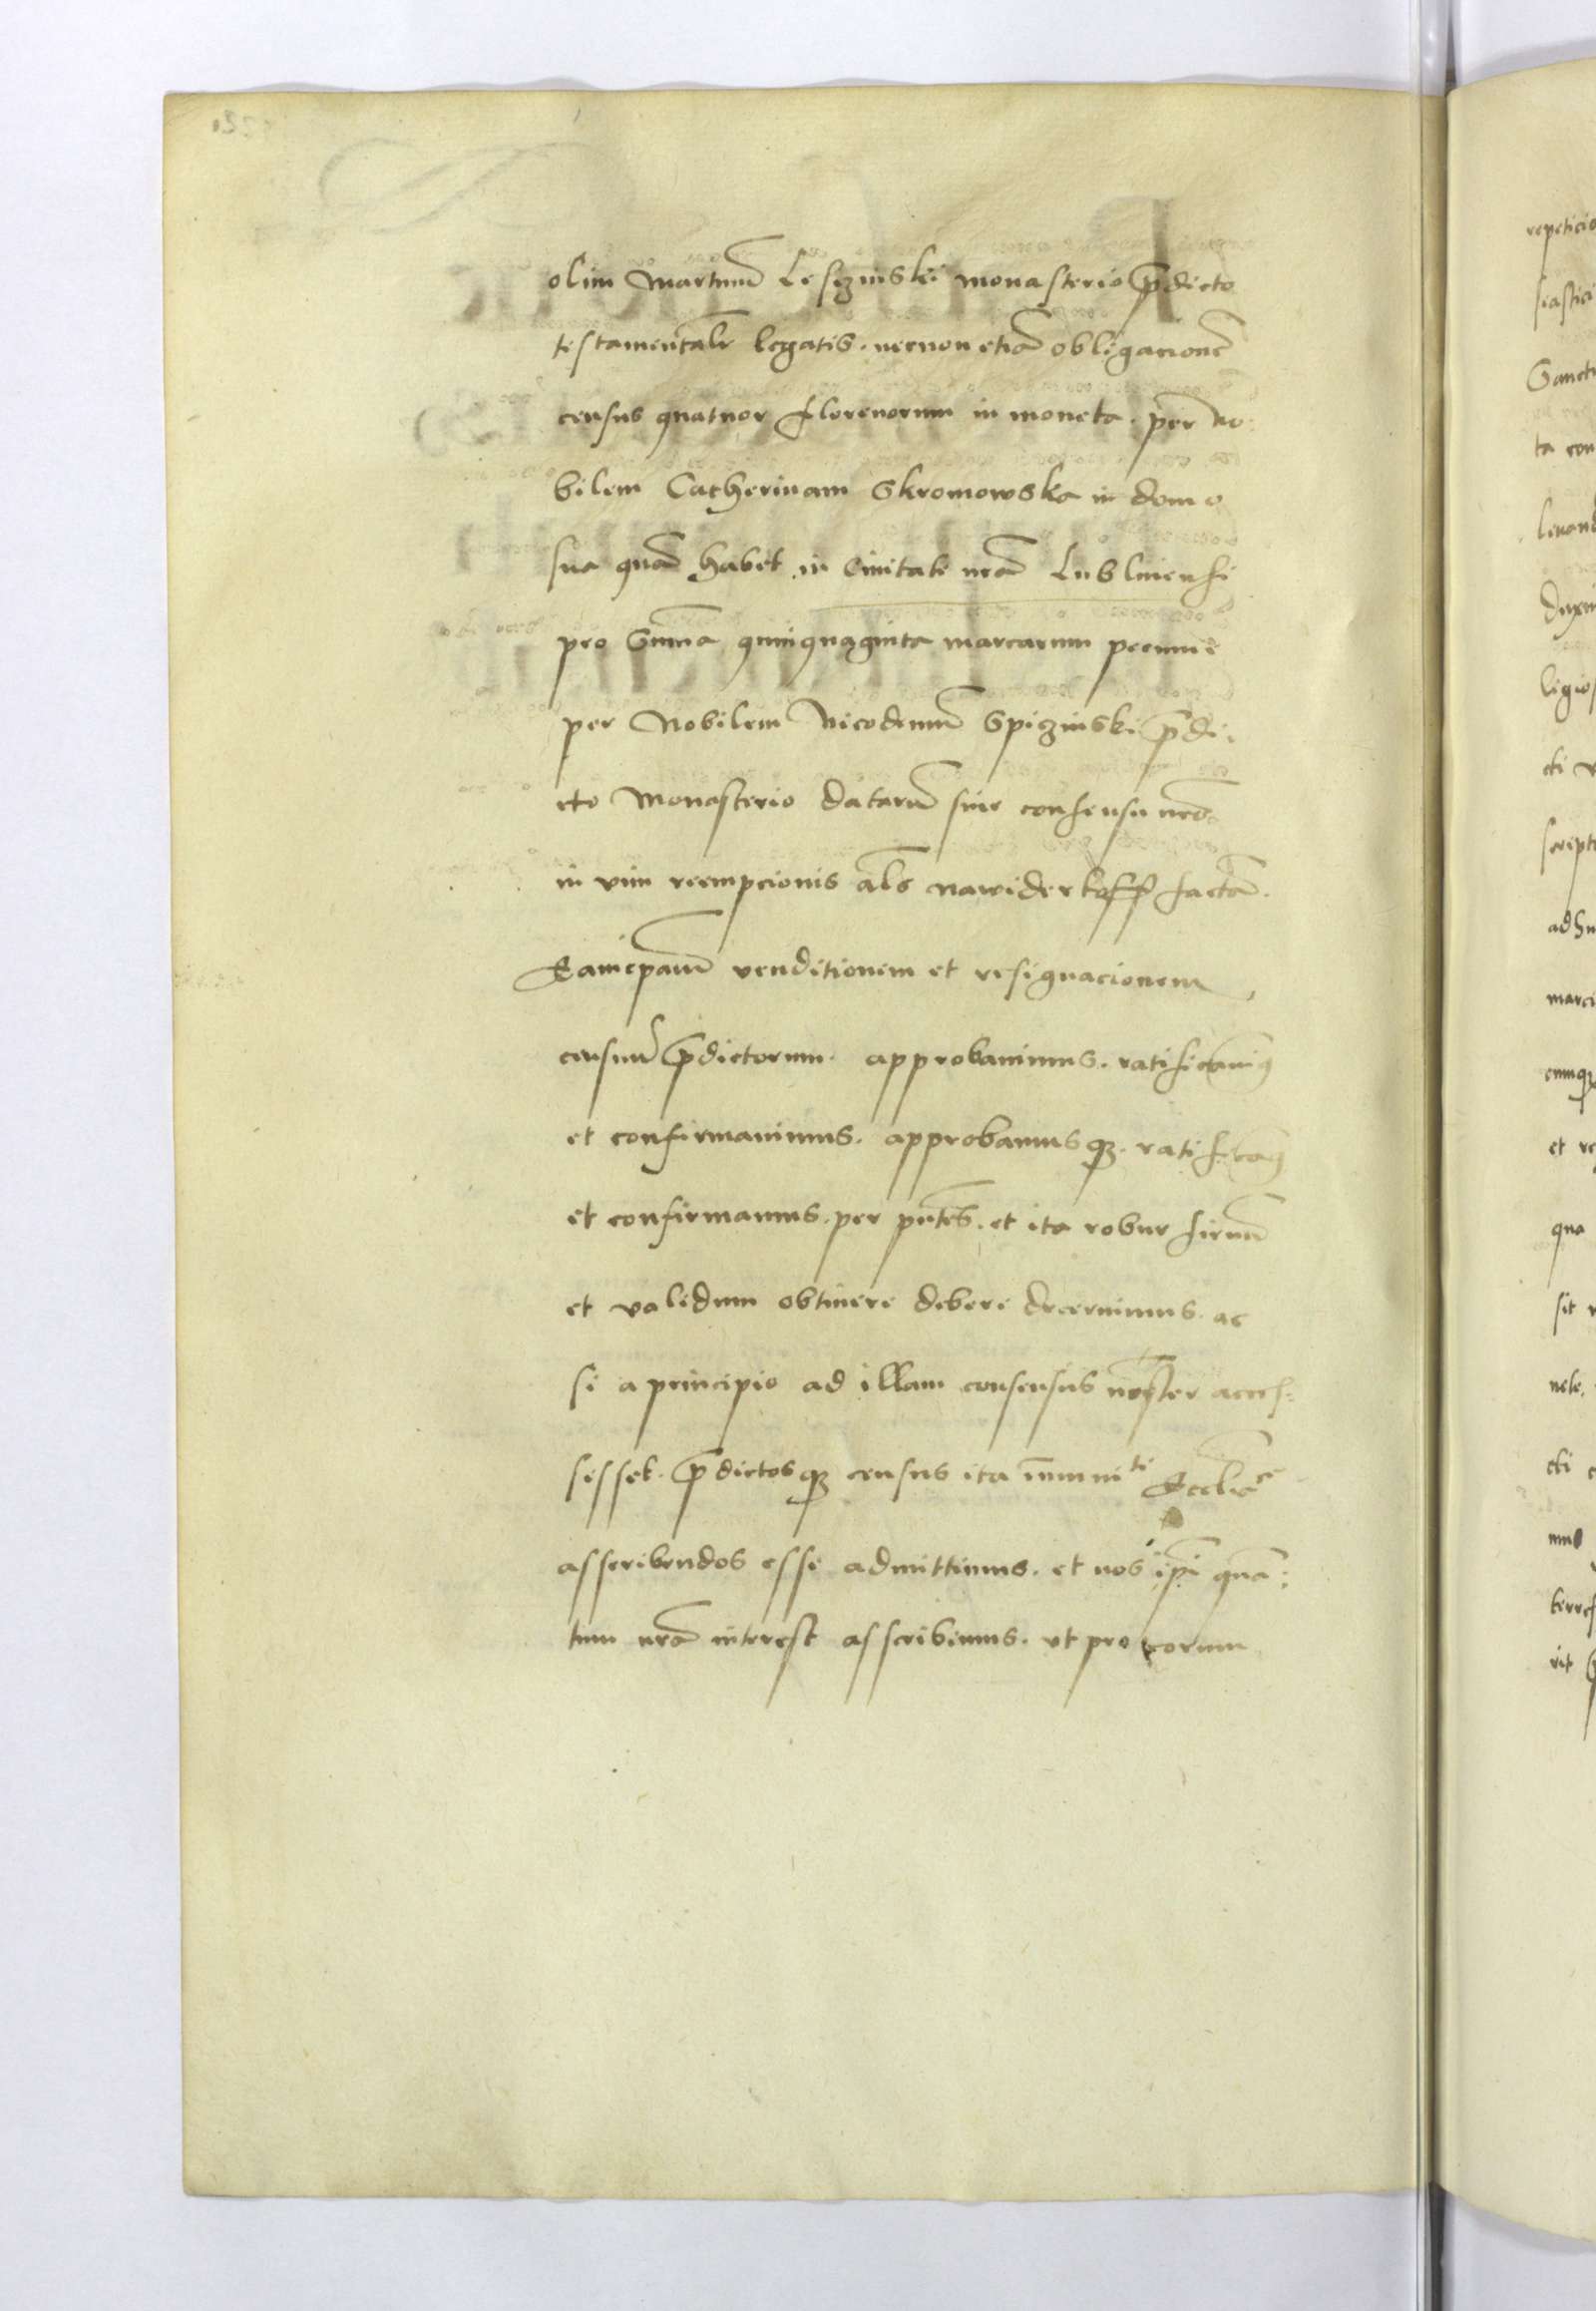 olim Martinū Lesczinski monasterio p̄dicto
testamentalr legatis . necnon etiā obligacionē
census quatuor florenorum in moneta . per no
bilem Catherinam Skromowska in domo
sua quā habet in Ciuitate nrā Lublinensi
pro Sum̄a quinquaginta marcarum pecunie
per Nobilem Nicodemū Spiczinski p̄di
cto Monasterio datarū sine consensu nrō
in vim reempcionis als nawiderkoff factā .
Eamcpam̄ venditionem et resignacionem
censuū p̄dictorum . approbauimus . ratificauimꝰ
et confirmauimus . approbamusqꝫ . ratificamꝰ
et confirmamus . per pn̄tes . et ita robur firmū
et validum obtinere debere decernimus . ac
si a principio ad illam consensus noster acces
sisset . p̄dictosqꝫ census ita im̄uniti Eccliē
asscribendos esse admittimus . et nos ip̄i quā
tum nrā interest asscribimus . vt pro eorum
repeticio
siastici
Sancti
ta con
leuand
duxim
ligios
cti
script
adhu
marci
cumqꝫ
et re
qua
sit
nete
cti
mus
terres
rit